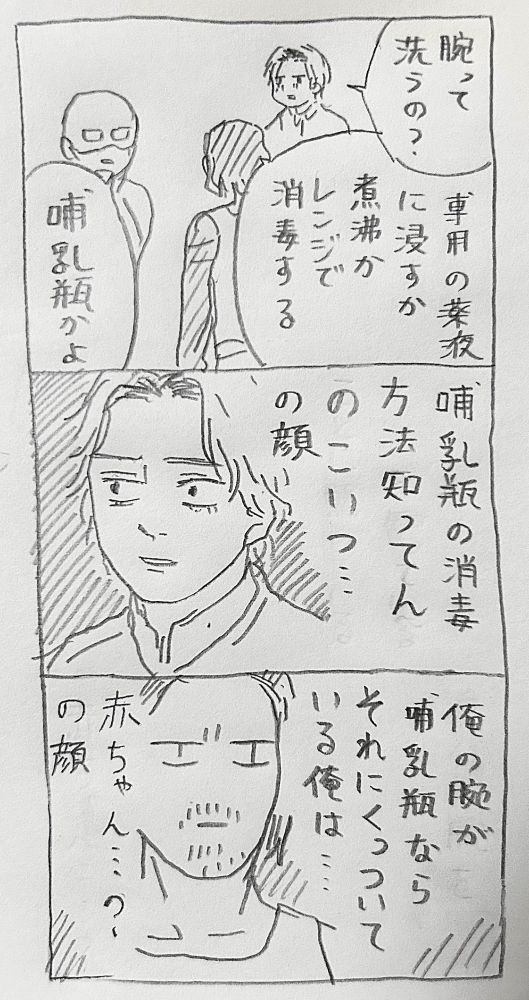 腕って
洗うの?
専用の薬液
に浸すか
煮沸か
レンジで
消毒する
哺乳瓶かよ
哺乳瓶の消毒
方法知ってん
のこいつ…
の顔
俺の腕が
哺乳瓶なら
それにくっついて
いる俺は…
赤ちゃん…?
の顔